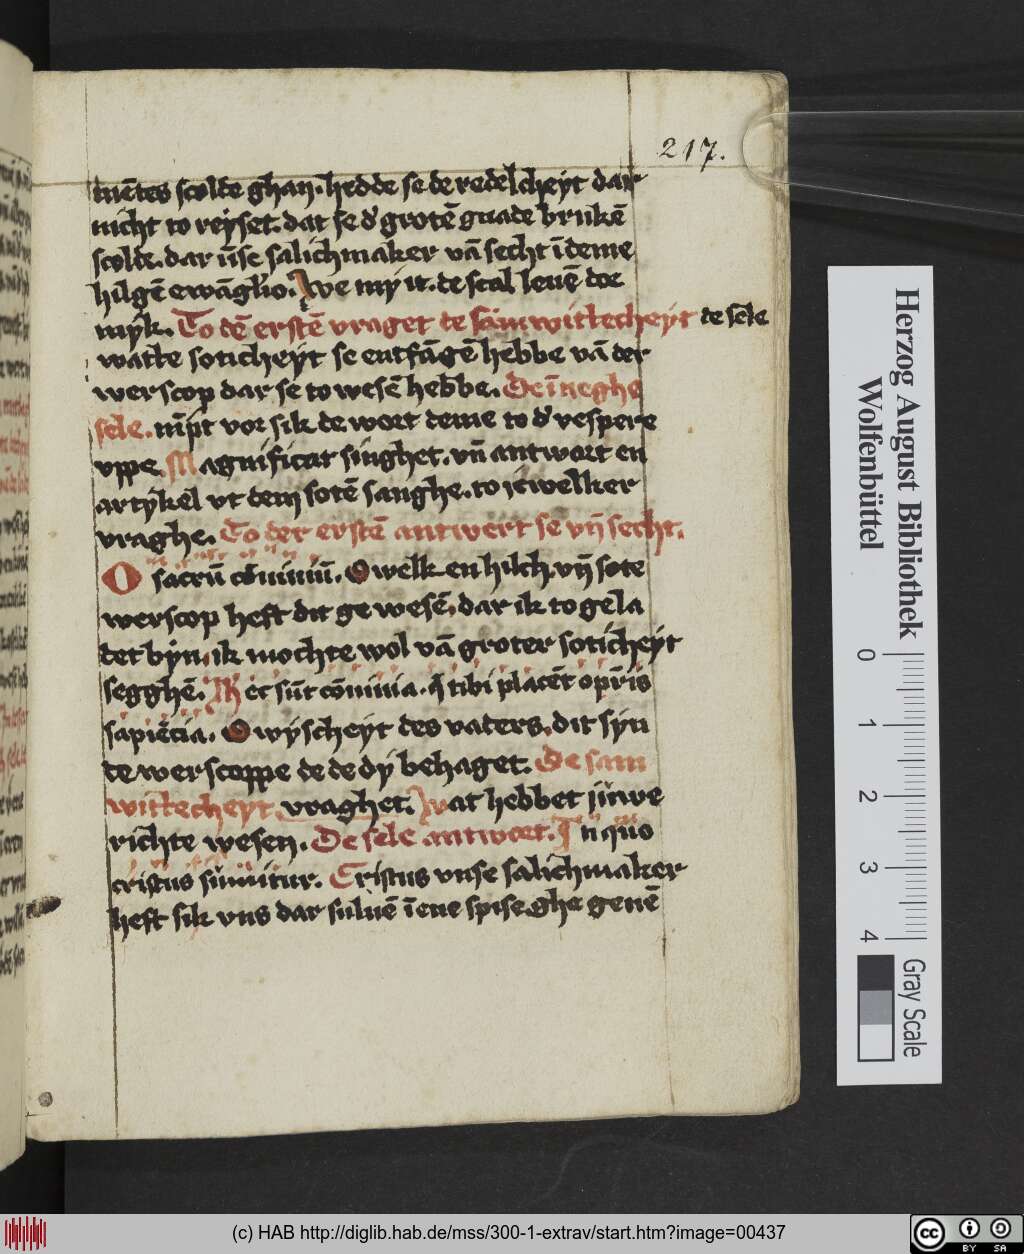 217.
mētes scolde ghan. hedde se de redelcheyt dar
nicht to reyset. dat se d' grotē gnade brukē
scolde. dar ūse salichmaker vā secht ī deme
hilgē ewāg'lio. We my it. de scal leuē doe
myk. To dē erstē vraget de sāmwitlecheyt de sele
watte soticheyt se entfāgē hebbe vā der
werscop dar se to wesē hebbe. De īneghe
sele. nīpt vor sik de wort deme to d' vespere
vppe Magnificat singhet. vn̄ antwort en
artykel vt dem sotē sanghe. to itwelker
vraghe. To der erstē antwert se vn̄ secht.
O sacrū cōuiuiū. O welk en hilch. vn̄ sote
werscop heft dit ge wesē. dar ik to gela
det byn. ik mochte wol vā groter soticheyt
segghē. Hec sūt cōuiuia. q̄ tibi placēt o pr̄is
sapiēcia. O wyscheyt des vaters. dit syn
de werscoppe de de dy behaget. De sam
witlecheyt. vraghet. Wat hebbet juwe
richte wesen. De sele antwort. In quo
cristus sumitur. Cristus vnse salichmaker
heft sik vns dar suluē ī ene spise ghe geuē
Herzog August Bibliothek
Wolfenbüttel
0 1 2 3 4
Gray Scale
(c) HAB http://diglib.hab.de/mss/300-1-extrav/start.htm?image=00437
cc BY SA